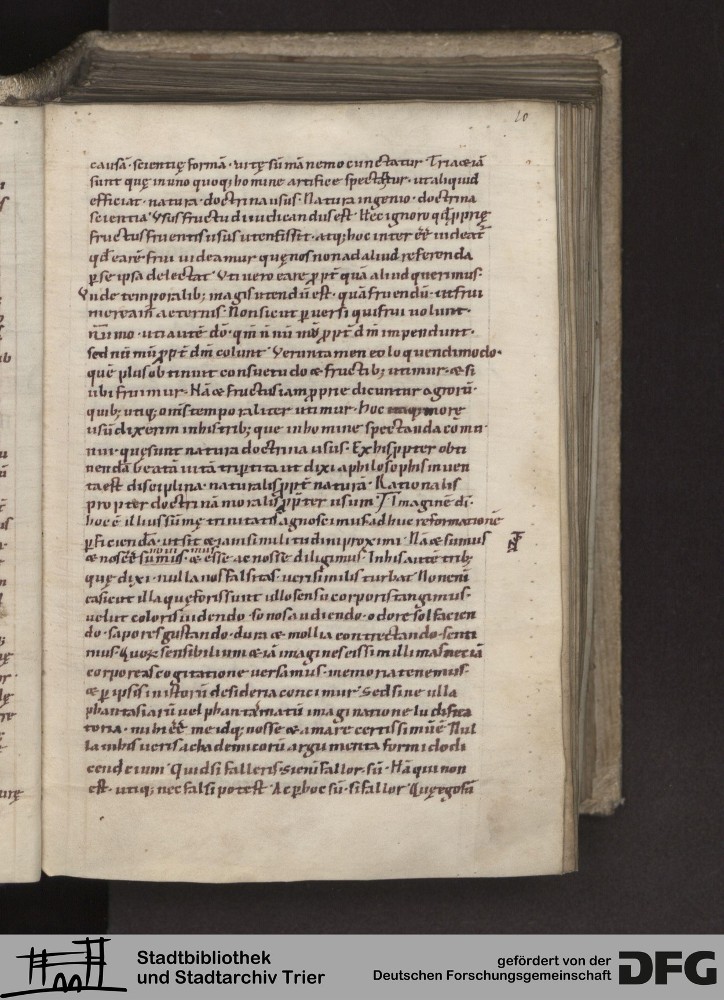 20
causā· scientię formā· uitę sūmā nemo cunctatur Tria &iā
sunt quę in uno quoq; homine artifice spectātur· ut aliquid
efficiat· natura· doctrina usus· Natura ingenio· doctrina
scientia· Usus fructu diiudicandus est Nec ignoro qđ pprię
fructus fruentis usus utentis sit· atq; hoc inter
frui uideamur quę nos non ad aliud referenda
p se ipsa delectat· Uti uero ea re ppt quā aliud querimus·
Unde temporalib; magis utendū est· quā fruendū· ut frui
mereamur aeternis· Non sicut puersi qui frui uolunt·
nūmo· uti autē dō· qm̄ n̄ nūmū ppt dm̄ impendunt·
sed nūmū ppt dm̄ colunt· Veruntamen eo loquendi modo·
quē plus obtinuit consuetudo & fructib; utimur· & si
ubi fruimur· Nā & fructus iam pprie dicuntur agrorū·
quib; utiq; om̄s temporaliter utimur· hoc more
usū dixerim in his trib; que in homine spectanda com
nui· quę sunt natura doctrina usus· Ex his ppter obti
nendā beatā uitā tripertita ut dixi a philosophis inuen
ta est disciplina· naturalis ppt naturā· Rationalis
propter doctrinā moralis ppter usum· Imaginē dī·
hoc ē illius sūmę trinitatis agnoscimus adhuc reformatione
pficiendā· ut sit &iam similitudini proxima· Nā & sumus
& nos eē nouimus· & esse ac nosse diligimus· In his autē trib;
quę dixi· nulla nos falsitas uerisimilis turbat Non enī
ea sicut illa quę foris sunt ullo sensu corporis tangimus·
uelut coloris uidendo· sonos audiendo· odores olfacien
do· sapores gustando· dura & mollia contrectando· senti
mus· Quoꝝ sensibilium &iā imagines eis simillimas nec iā
corporeas cogitatione uersamus· memoria tenemus·
& p ipsas in istorū desideria concimur· Sed sine ulla
phantasiarū uel phantasmatū imaginatione ludifica
toria· mihi eē me idq; nosse & amare certissimū ē Nul
la in his ueris achademicorū argumenta formido di
cendeium· Quid si falleris· Si enī fallor· sū· Nā qui non
est· utiq; nec falli potest Ac p hoc sū· si fallor Quę ergo sū
Stadtbibliothek
und Stadtarchiv Trier
gefördert von der
Deutschen Forschungsgemeinschaft
DFG